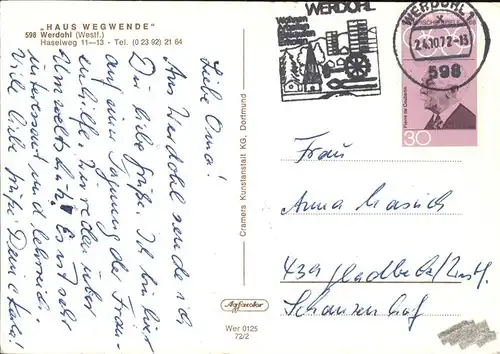 "HAUS WEGWENDE"
598 Werdohl (Westf.)
Haselweg 11—13 - Tel. (0 23 92) 21 64
Liebe Oma!
Aus Werdohl sende ich
Dir liebe Grüße. Ich bin hier
auf einer Tagung der Frauen-
Wir reden über
Umweltschutz. Es ist sehr
interessant und lehrreich.
Viele liebe Grüße Deine
Cramers Kunstanstalt KG, Dortmund
Agfacolor
Wer 0125
72/2
WERDOHL
Wohnen
Arbeiten
Erholen
WERDOHL 1
24.10.72-13
598
30
Frau
Anna
439 Gladbeck/Westf.